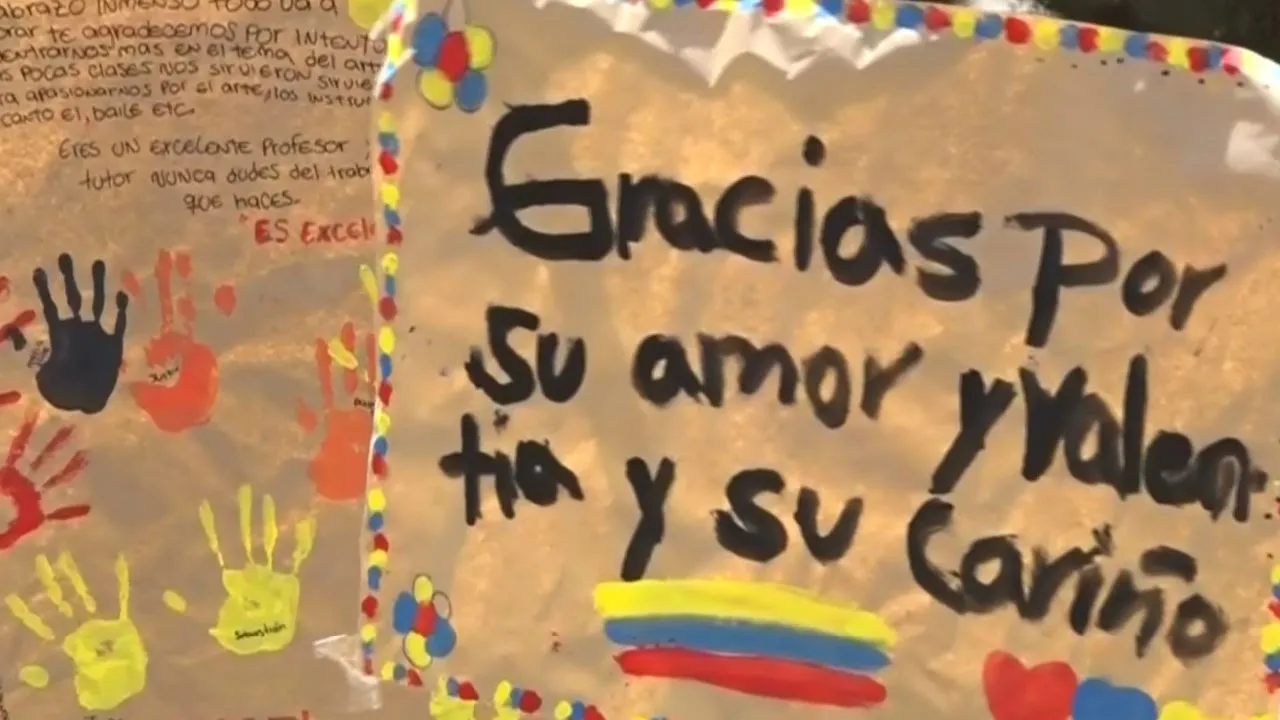 abrazo inmenso todo va a
te agradecemos por intento
más en el tema del art
pocas clases nos sirvieron sirvie
apasionarnos por el arte, los instru
canto el, baile etc.
Eres un excelente profesor
tutor nunca dudes del trab
que haces.
"ES EXCEL
Gracias Por
su amor y valen
tia y su Cariño
Sebastián